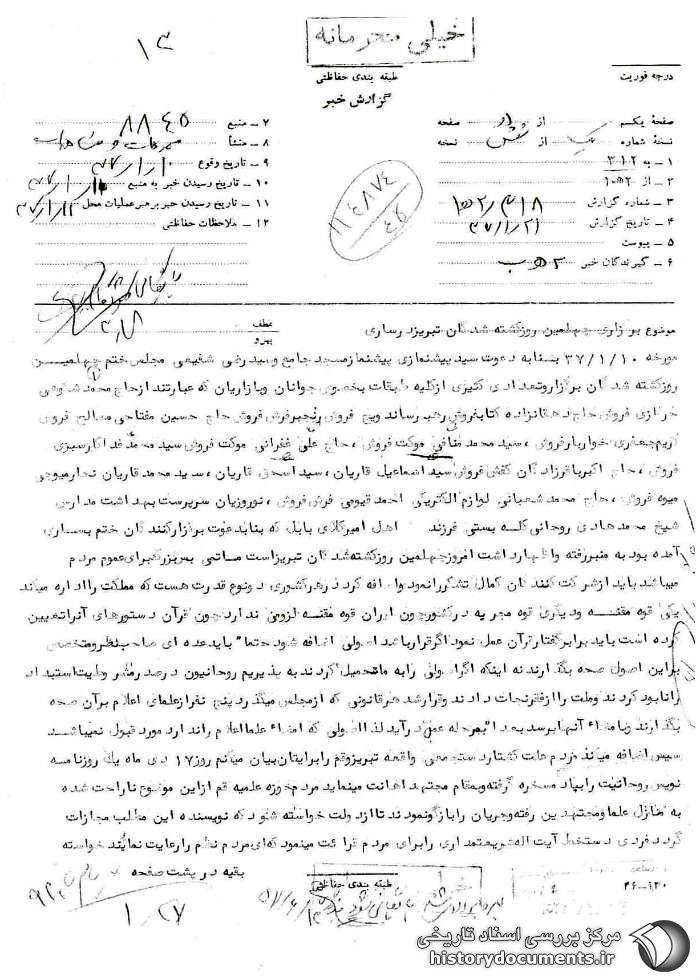 خیلی محرمانه
۱۳
درجه فوریت
طبقه بندی حفاظتی
گزارش خبر
صفحه یکم از دو صفحه
نسخه شماره یک از شش نسخه
۱ – به ۳۱۲
۲ – از ۱۰ه۲
۳ – شماره گزارش
۴ – تاریخ گزارش ۳۷/۱/۲۱
۵ – پیوست
۶ – گیرندگان خبر
۷ – منبع ۸۸۴۵
۸ – منشأ
۹ – تاریخ وقوع ۳۷/۱/۱۰
۱۰ – تاریخ رسیدن خبر به منبع
۱۱ – تاریخ رسیدن خبر برهبر عملیات محل
۱۲ – ملاحظات حفاظتی
۱۱۴۸۷۴
موضوع برگزاری چهلمین روز کشته شدگان تبریز در ساری
عطف
پیرو
مورخه ۳۷/۱/۱۰ بنا به دعوت سید پیشنمازی پیشنماز مسجد جامع و سید رضی شفیعی مجلس ختم چهلمین
روز کشته شدگان برگزار و تعدادی کثیری از کلیه طبقات بخصوص جوانان و بازاریان که عبارتند از حاج محمد
خرازی فروش حاج دهقانزاده کتابفروش فرش فروش حاج حسین مفتاحی مصالح فروش
کریم جعفری خواربار فروش ، سید محمد موکت فروش ، حاج علی غفرانی موکت فروش سید محمد فداکار سبزی
فروش ، حاج اکبر باقرزادگان کفش فروش سید اسماعیل قاریان ، سید اسحق قاریان ، سید محمد قاریان
میوه فروش ، حاج محمد شعبانی لوازم الکتریکی احمد قیومی فرش فروش ، نوروزیان سرپرست بهداشت مدارس
شیخ محمد هادی روحانی کله بستی فرزند اهل امیرکلای بابل که بنا بدعوت برگزار کنندگان ختم بساری
آمده بود به منبر رفته و اظهار داشت امروز چهلمین روز کشته شدگان تبریز است ماتمی بس بزرگ برای عموم مردم
میباشد باید از شرکت کنندگان کمال تشکر را نمود و اضافه کرد در هر کشوری دو نوع قدرت هست که مملکت را اداره میکند
یکی قوه مقننه و دیگری قوه مجریه در کشور چون ایران قوه مقننه لزومی ندارد چون قرآن دستورهای آنرا تعیین
کرده است باید برابر گفتار قرآن عمل نمود اگر قرار باشد اصولی اضافه شود حتما" باید عده ای صاحب نظر و متخصص
بر این اصول صحه بگذارند نه اینکه اگر اصولی را به ما تحمیل کردند به پذیریم روحانیون در صدر مشروطیت استبداد
را نابود کردند و ملت را از نجات دادند و قرار شد هر قانونی که از مجلس میگذرد پنج نفر از علمای اعلام بر آن صحه
بگذارند و با امضاء آنها برسد بعدا" بمرحله عمل در آید لذا اصولی که امضاء علماء اعلام را ندارد مورد قبول نمیباشد
سپس اضافه میکند مردم علت کشتار دستجمعی واقعه تبریز و قم را برایتان بیان میکنم روز ۱۷ دی ماه یک روزنامه
نویس روحانیت را بباد مسخره گرفته و بمقام مجتهد اهانت مینماید مردم حوزه علمیه قم از این موضوع ناراحت شده
به منازل علما و مجتهدین رفته و جریان را بازگو نمودند تا از دولت خواسته شود که نویسنده این مطلب مجازات
گردد فردی دستخط آیت اله شریعتمداری را برای مردم قرائت مینمود که ای مردم نظم را رعایت نمائید خواسته
بقیه در پشت صفحه
طبقه بندی حفاظتی
۴۶–۱۲۰
۱/۲۷
مرکز بررسی اسناد تاریخی
historydocuments.ir